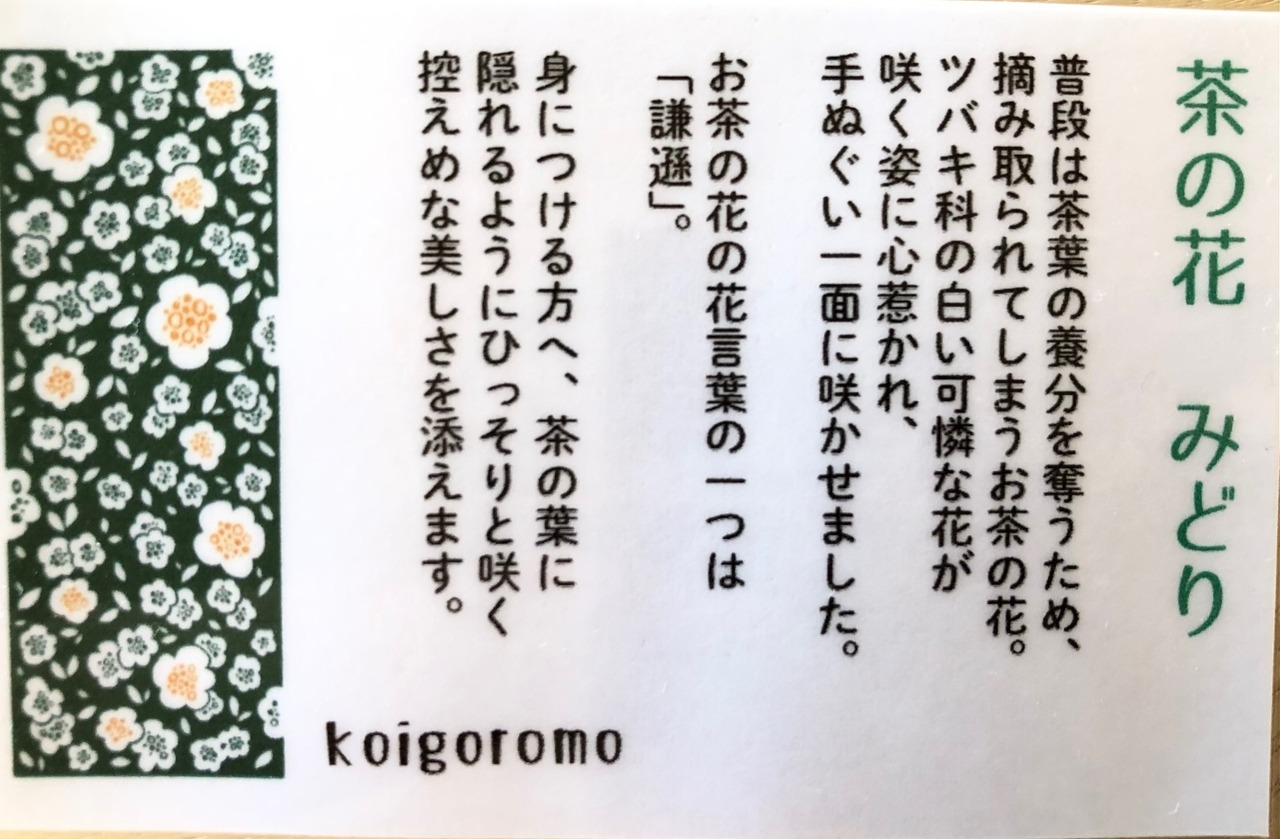 茶の花　みどり
普段は茶葉の養分を奪うため、
摘み取られてしまうお茶の花。
ツバキ科の白い可憐な花が
咲く姿に心惹かれ、
手ぬぐい一面に咲かせました。
お茶の花の花言葉の一つは
「謙遜」。
身につける方へ、茶の葉に
隠れるようにひっそりと咲く
控えめな美しさを添えます。
koigoromo